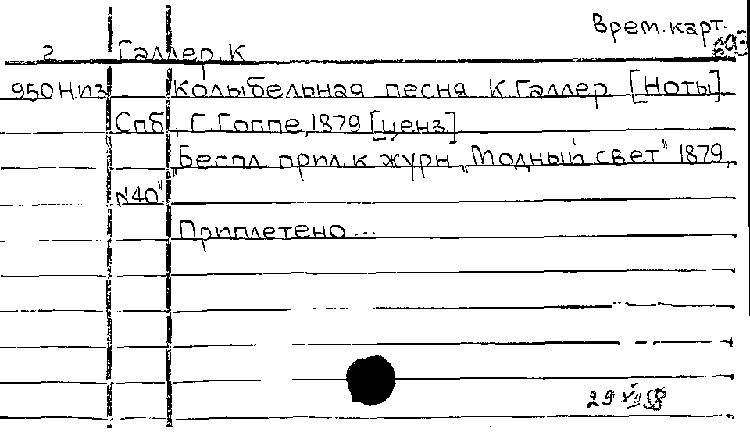 Врем. карт.
2 Галлер. К
950Низ Колыбельная песня К. Галлер [Ноты]
Спб, Г. Гоппе, 1879 [ценз]
„Беспл. прил. к журн „Модный свет" 1879,
N40"
Приплетено...
29